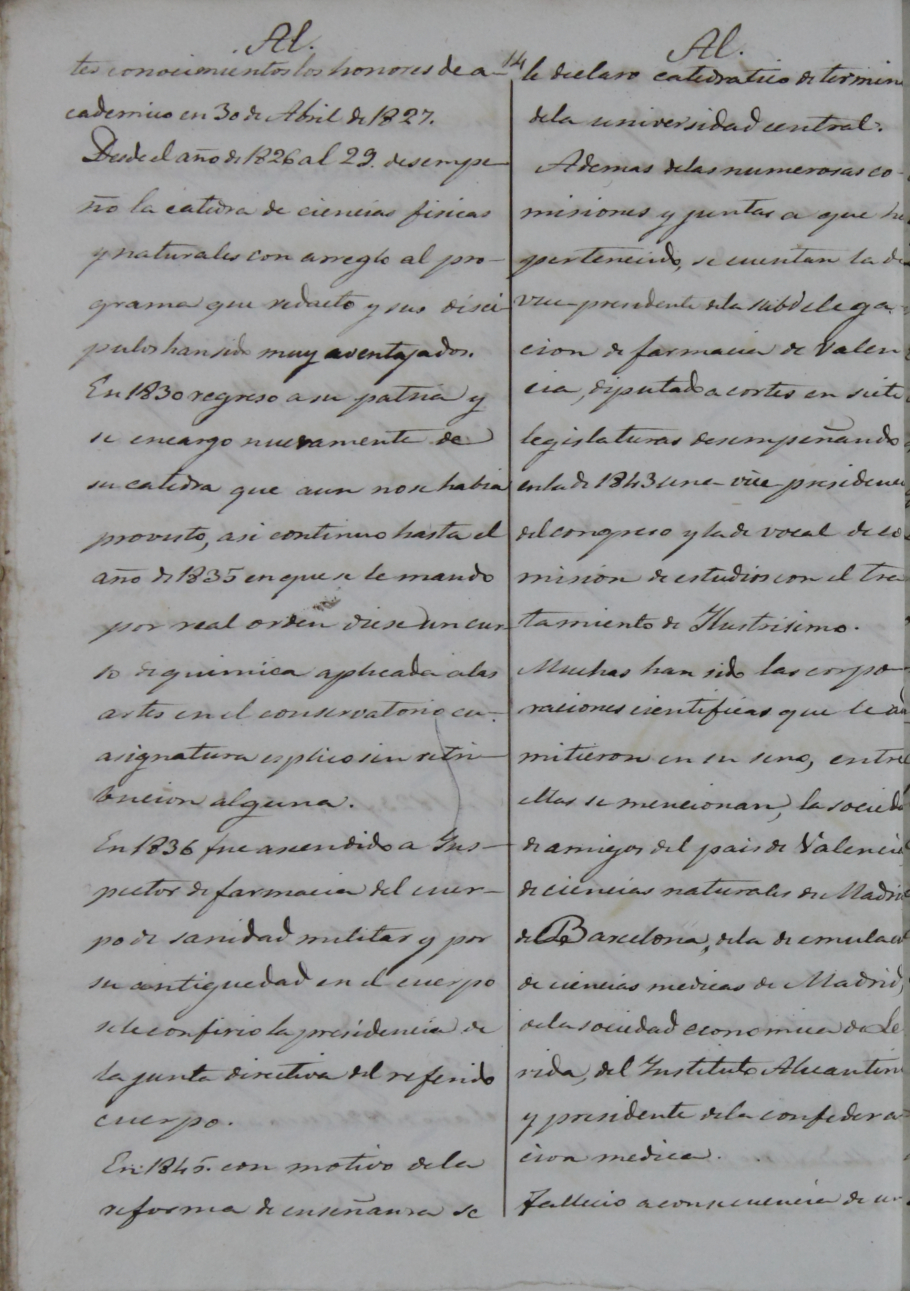 Al.
tes conocimientos los honores de a-
cademico en 30 de Abril de 1827.
Desde el año de 1826 al 29. desempe-
ño la catedra de ciencias fisicas
y naturales con arreglo al pro-
grama que redacto y sus disci-
pulos han sido muy aventajados.
En 1830 regreso a su patria y
se encargo nuevamente de
su catedra que aun no se habia
provisto, asi continuo hasta el
año de 1835 en que se le mando
por real orden diese un cur-
so de quimica aplicada a las
artes en el conservatorio cu-
asignatura esplico sin retri-
bucion alguna.
En 1836 fue ascendido a Ins-
pector de farmacia del cuer-
po de sanidad militar y por
su antiguedad en el cuerpo
se le confirio la presidencia de
la junta directiva del referido
cuerpo.
En 1845. con motivo de la
reforma de enseñanza se
14
Al.
le declaro catedratico de termin
de la universidad central.
Ademas de las numerosas co-
misiones y juntas a que h
pertenecido, se cuentan la de
vice-presidente de la subdelega-
cion de farmacia de Valen
cia, diputado a cortes en siete
legislaturas desempeñando
en la de 1843 una vice-presidenc
del congreso y la de vocal de co
mision de estudios con el tra
tamiento de Ilustrisimo.
Muchas han sido las corpo-
raciones cientificas que le ad
mitieron en su seno, entre
ellas se mencionan, la socieda
de amigos del pais de Valencia
de ciencias naturales de Madri
de Barcelona, de la de emulaci
de ciencias medicas de Madrid,
de la sociedad economica de Le
rida, del Instituto Alicantin
y presidente de la confedera-
cion medica.
Fallecio a consecuencia de u-